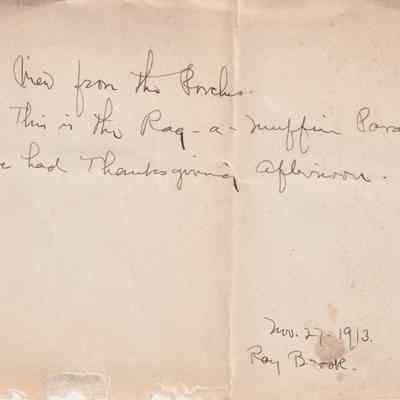 View from the Porches.
This is the Rag-a-muffin Para
e had Thanksgiving afternoon.
Nov. 27-1913.
Ray Brook.